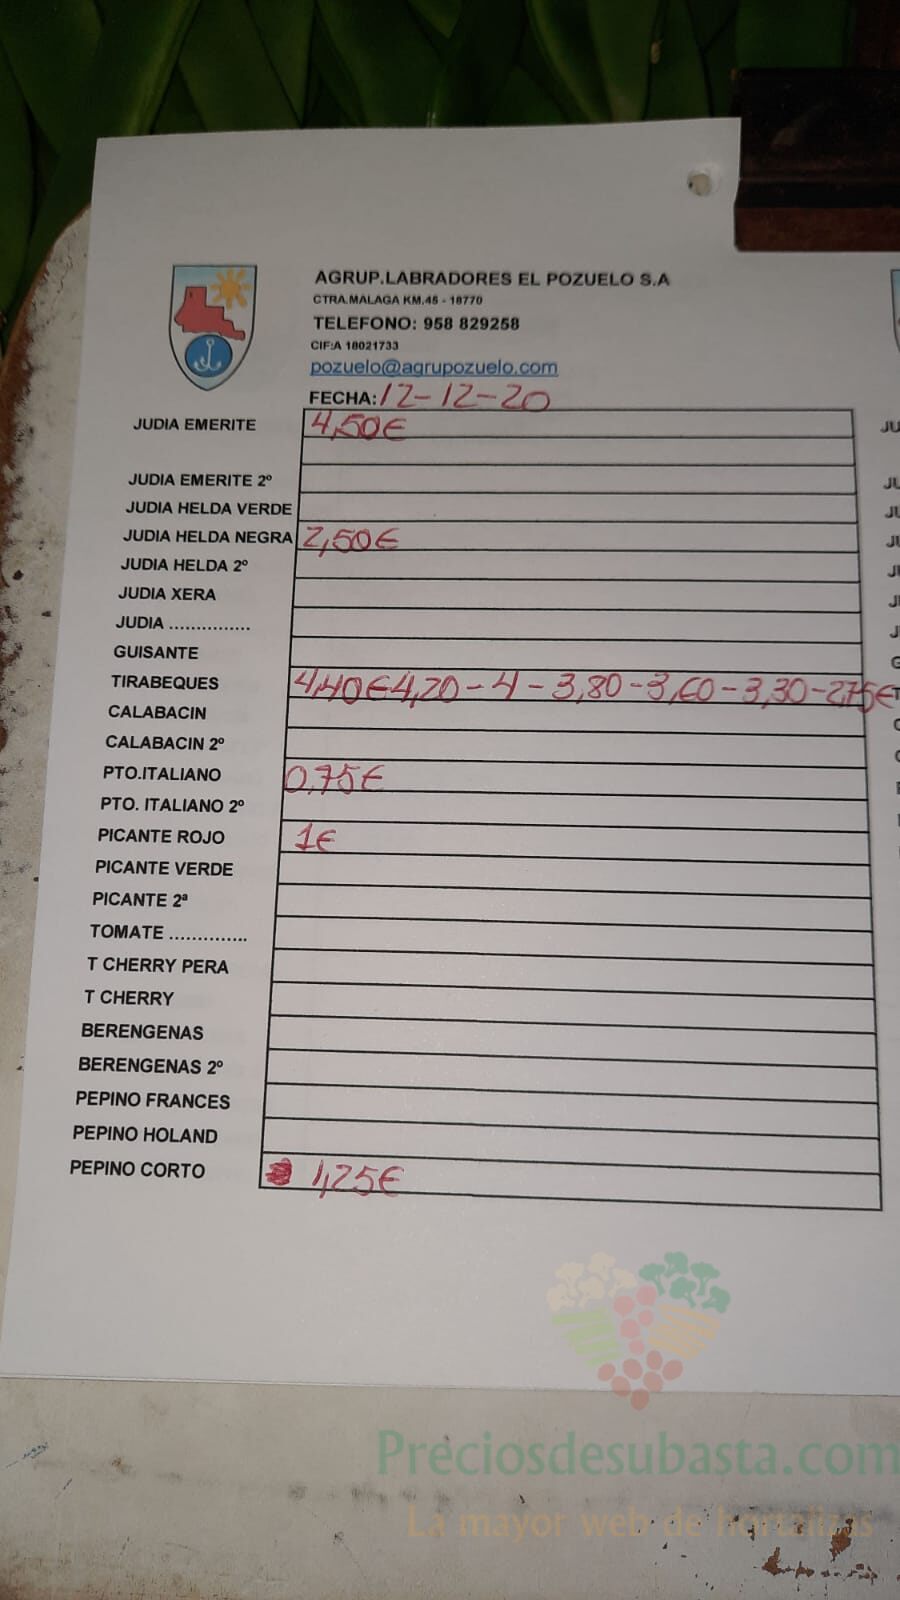 AGRUP.LABRADORES EL POZUELO S.A
CTRA.MALAGA KM.45 - 18770
TELEFONO: 958 829258
CIF:A 18021733
pozuelo@agrupozuelo.com
FECHA: 12-12-20
JUDIA EMERITE 4,50€
JUDIA EMERITE 2º
JUDIA HELDA VERDE
JUDIA HELDA NEGRA 2,50€
JUDIA HELDA 2º
JUDIA XERA
JUDIA ...............
GUISANTE
TIRABEQUES 4,40€ 4,20 - 4 - 3,80 - 3,60 - 3,30 - 2,75€
CALABACIN
CALABACIN 2º
PTO.ITALIANO 0,75€
PTO. ITALIANO 2º
PICANTE ROJO 1€
PICANTE VERDE
PICANTE 2ª
TOMATE ..............
T CHERRY PERA
T CHERRY
BERENGENAS
BERENGENAS 2º
PEPINO FRANCES
PEPINO HOLAND
PEPINO CORTO 1,25€
Preciosdesubasta.com
La mayor web de hortalizas